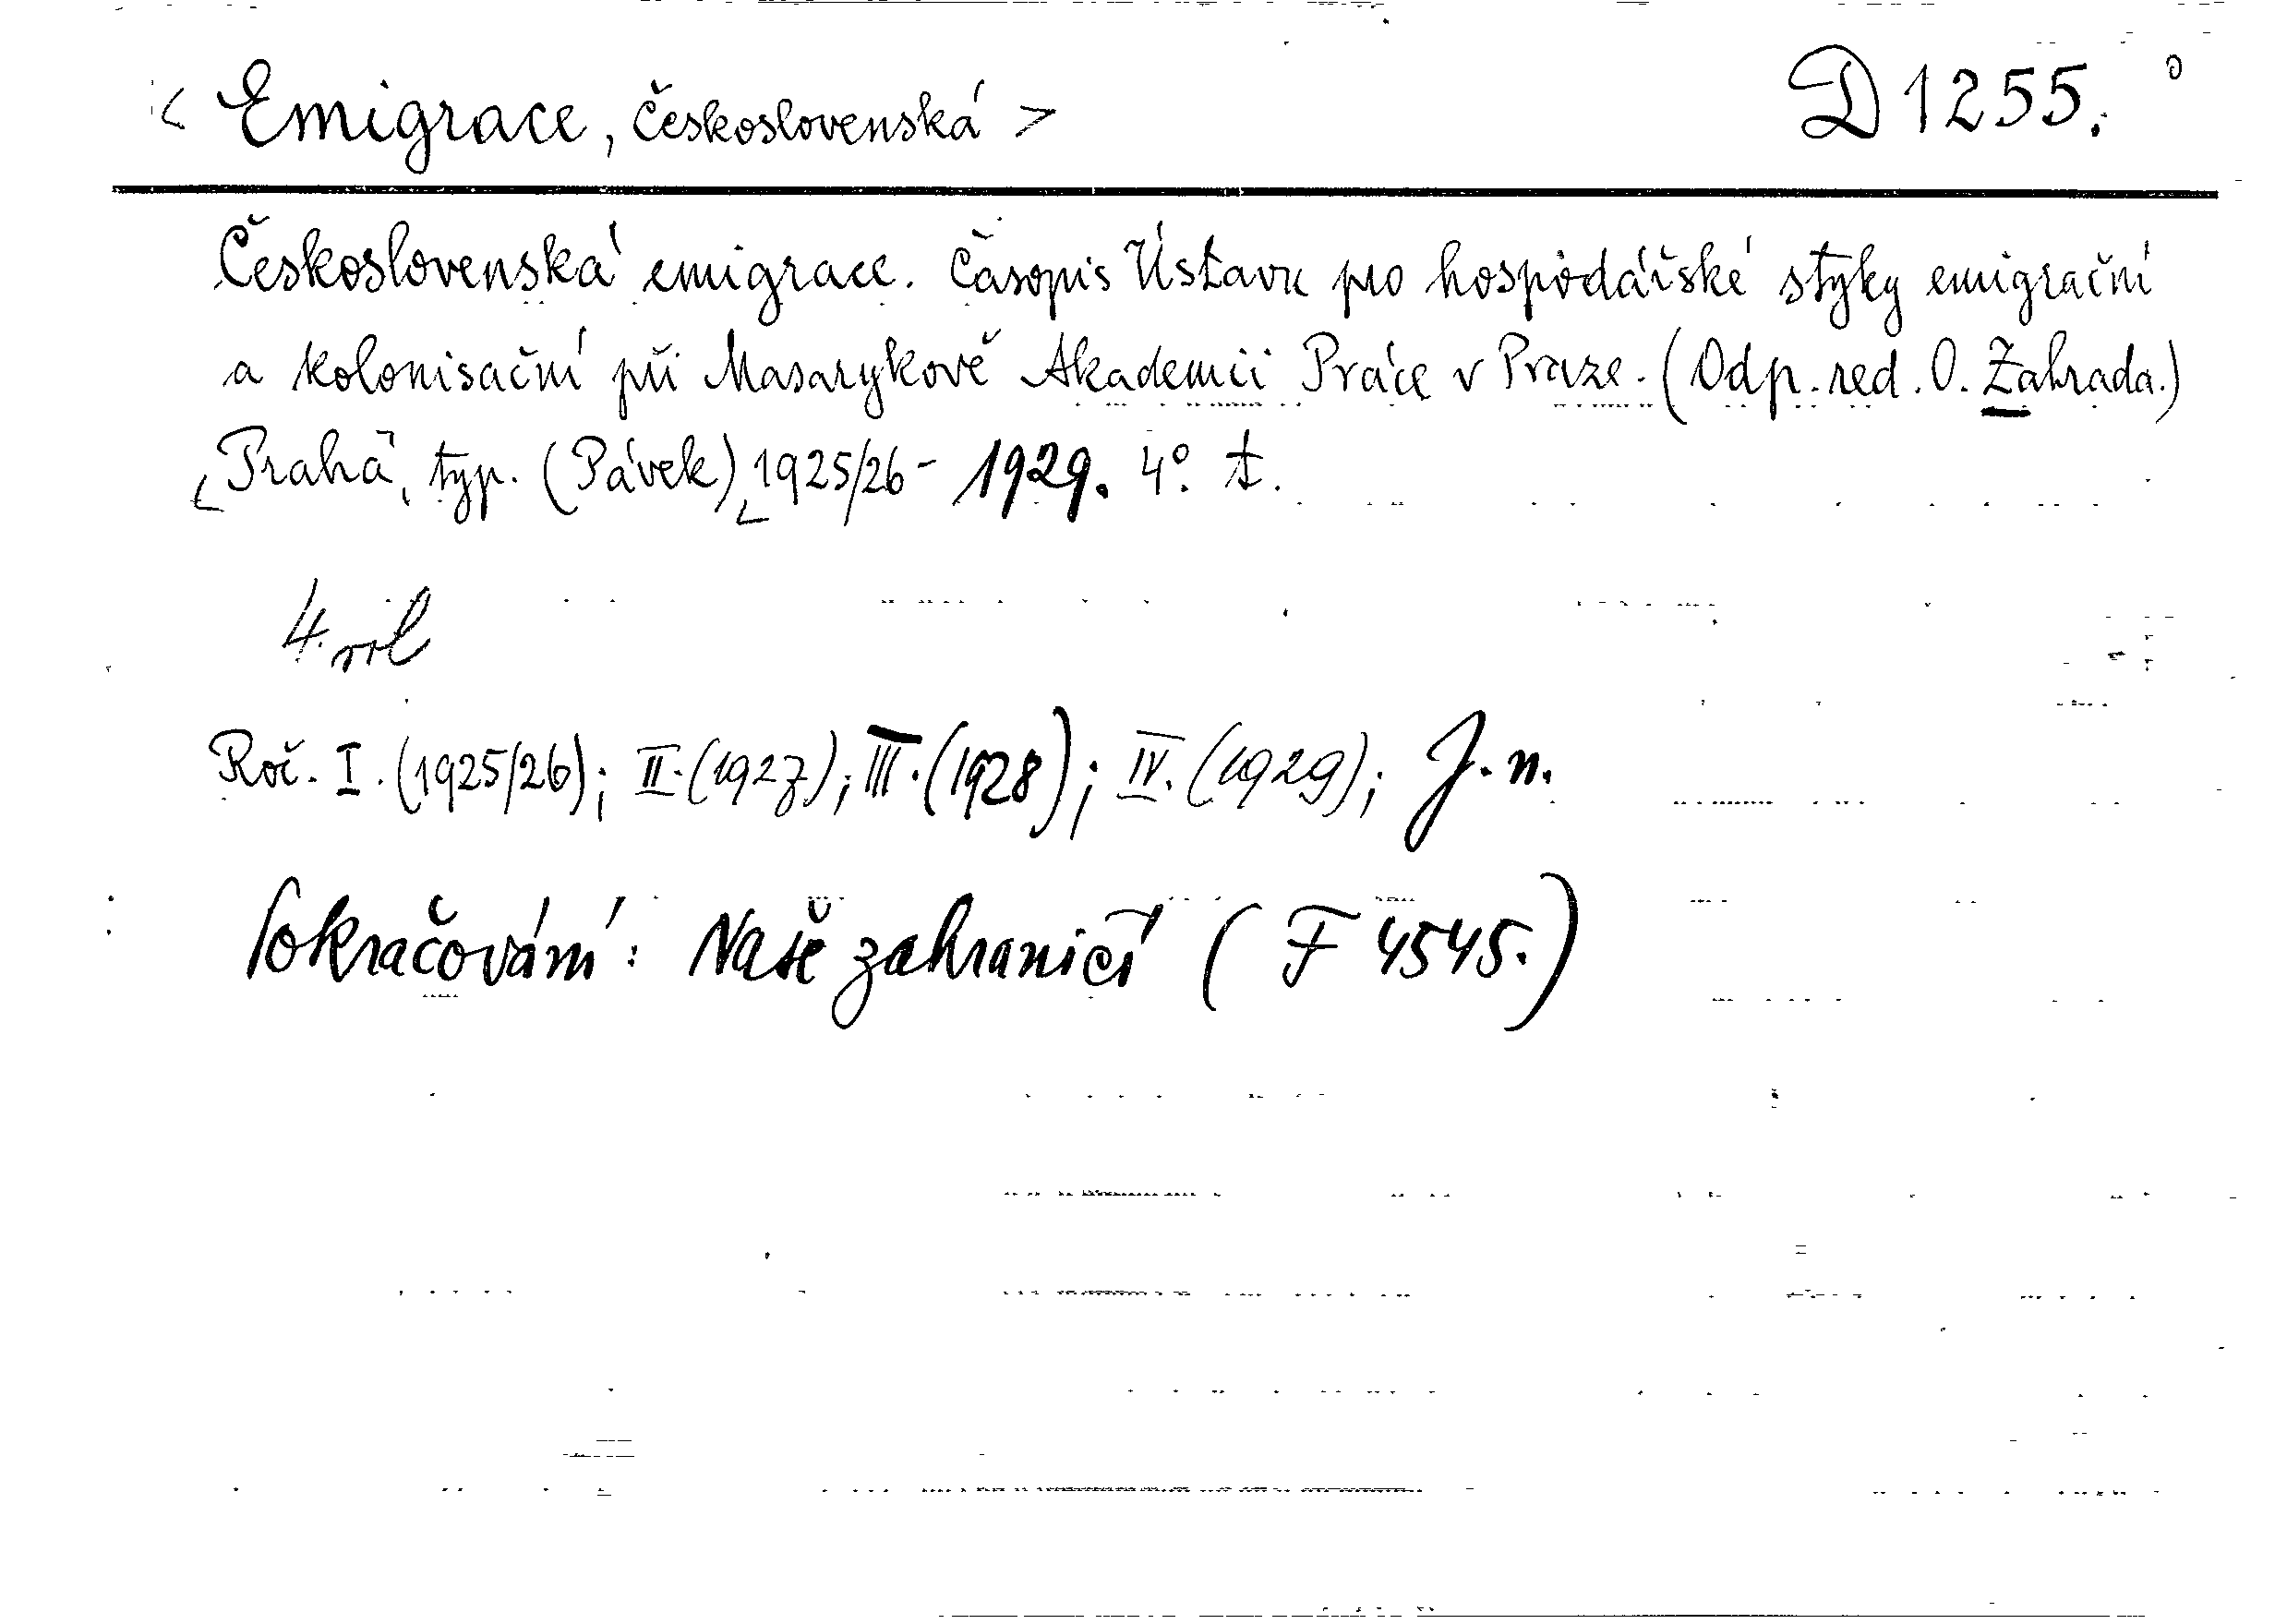 < Emigrace, československá > D 1255.
Československá emigrace. Časopis Ústavu pro hospodářské styky emigrační
a kolonisační při Masarykově Akademii Práce v Praze. (Odp. red. O. Zahrada.)
Praha, typ. (Pávek) 1925/26 - 1929. 4°. t.
4.
Roč. I. (1925/26); II. (1927); III. (1928); IV. (1929); J. n.
Pokračování: Naše zahraničí (F 4545.)